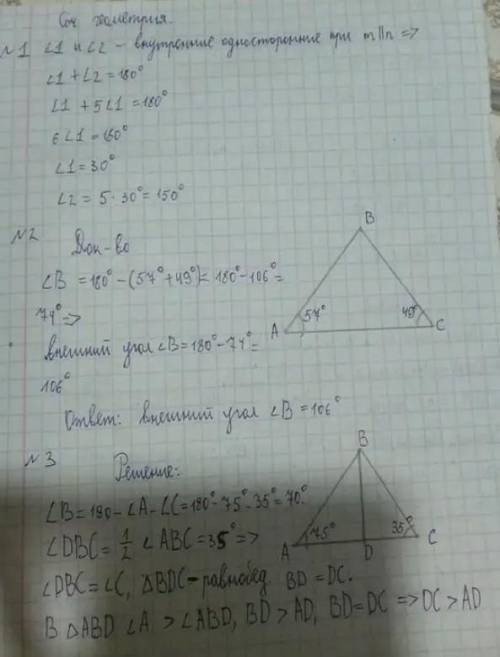 Соч геометрия.
№1 ∠1 и ∠2 - внутренние односторонние при m||n =>
∠1 + ∠2 = 180°
∠1 + 5∠1 = 180°
6∠1 = 180°
∠1 = 30°
∠2 = 5 · 30° = 150°
№2 Док-во
∠B = 180° - (57° + 49°) = 180° - 106° =
74° =>
внешний угол ∠B = 180° - 74° =
106°
Ответ: внешний угол ∠B = 106°
B
A
57°
49°
C
№3 Решение:
∠B = 180 - ∠A - ∠C = 180° - 75° - 35° = 70°.
∠DBC = 1/2 ∠ABC = 35° =>
∠DBC = ∠C, △BDC - равнобед. BD = DC.
В △ABD ∠A > ∠ABD, BD > AD, BD = DC => DC > AD
B
A
75°
D
35°
C